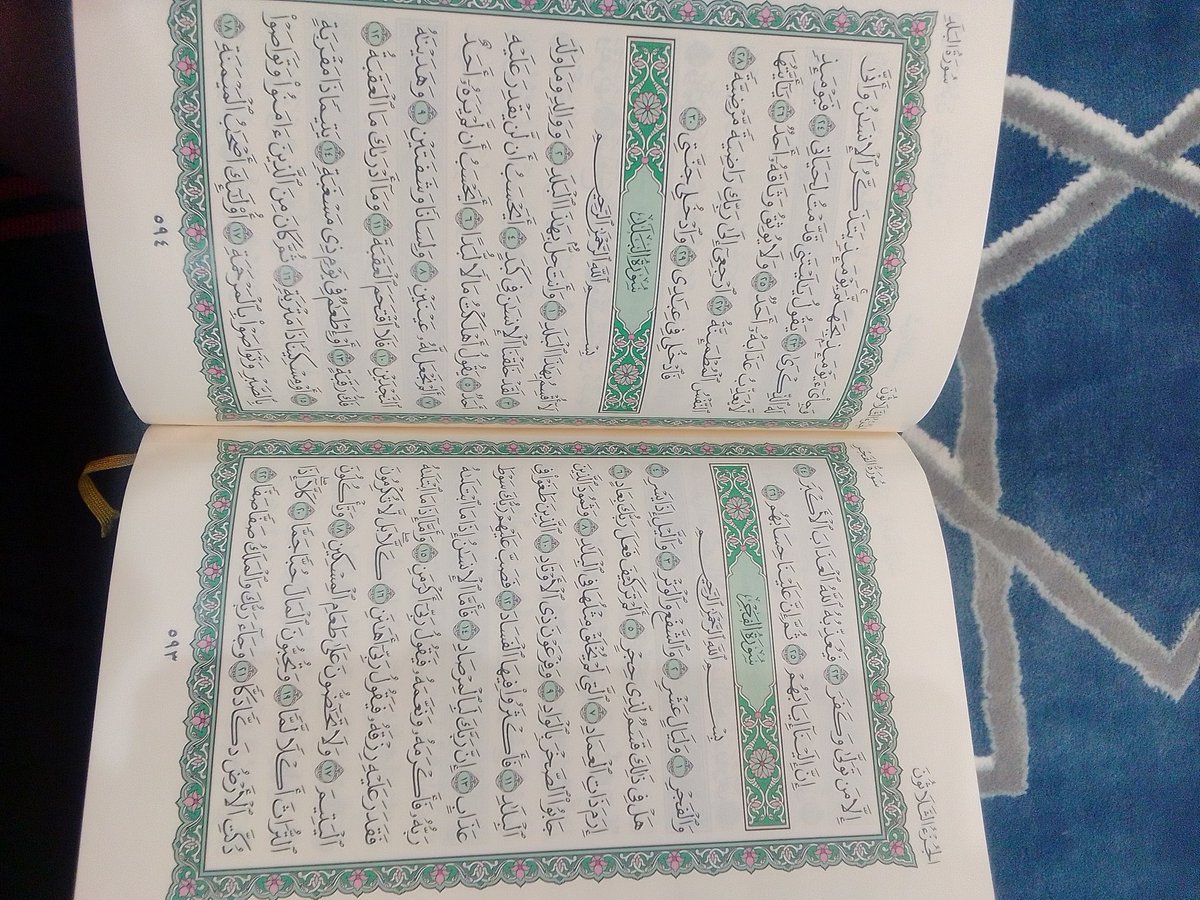 الجُزْءُ الثَّلَاثُونَ
سُورَةُ الفَجْرِ
إِلَّا مَن تَوَلَّىٰ وَكَفَرَ ٢٣ فَيُعَذِّبُهُ ٱللَّهُ ٱلْعَذَابَ ٱلْأَكْبَرَ ٢٤
إِنَّ إِلَيْنَآ إِيَابَهُمْ ٢٥ ثُمَّ إِنَّ عَلَيْنَا حِسَابَهُم ٢٦
سُورَةُ الفَجْرِ
بِسْمِ ٱللَّهِ ٱلرَّحْمَٰنِ ٱلرَّحِيمِ
وَٱلْفَجْرِ ١ وَلَيَالٍ عَشْرٍ ٢ وَٱلشَّفْعِ وَٱلْوَتْرِ ٣ وَٱلَّيْلِ إِذَا يَسْرِ ٤
هَلْ فِى ذَٰلِكَ قَسَمٌ لِّذِى حِجْرٍ ٥ أَلَمْ تَرَ كَيْفَ فَعَلَ رَبُّكَ بِعَادٍ ٦
إِرَمَ ذَاتِ ٱلْعِمَادِ ٧ ٱلَّتِى لَمْ يُخْلَقْ مِثْلُهَا فِى ٱلْبِلَٰدِ ٨ وَثَمُودَ ٱلَّذِينَ
جَابُوا۟ ٱلصَّخْرَ بِٱلْوَادِ ٩ وَفِرْعَوْنَ ذِى ٱلْأَوْتَادِ ١٠ ٱلَّذِينَ طَغَوْا۟ فِى
ٱلْبِلَٰدِ ١١ فَأَكْثَرُوا۟ فِيهَا ٱلْفَسَادَ ١٢ فَصَبَّ عَلَيْهِمْ رَبُّكَ سَوْطَ
عَذَابٍ ١٣ إِنَّ رَبَّكَ لَبِٱلْمِرْصَادِ ١٤ فَأَمَّا ٱلْإِنسَٰنُ إِذَا مَا ٱبْتَلَىٰهُ
رَبُّهُۥ فَأَكْرَمَهُۥ وَنَعَّمَهُۥ فَيَقُولُ رَبِّىٓ أَكْرَمَنِ ١٥ وَأَمَّآ إِذَا مَا ٱبْتَلَىٰهُ
فَقَدَرَ عَلَيْهِ رِزْقَهُۥ فَيَقُولُ رَبِّىٓ أَهَٰنَنِ ١٦ كَلَّا بَل لَّا تُكْرِمُونَ
ٱلْيَتِيمَ ١٧ وَلَا تَحَٰٓضُّونَ عَلَىٰ طَعَامِ ٱلْمِسْكِينِ ١٨ وَتَأْكُلُونَ
ٱلتُّرَاثَ أَكْلًا لَّمًّا ١٩ وَتُحِبُّونَ ٱلْمَالَ حُبًّا جَمًّا ٢٠ كَلَّآ إِذَا
دُكَّتِ ٱلْأَرْضُ دَكًّا دَكًّا ٢١ وَجَآءَ رَبُّكَ وَٱلْمَلَكُ صَفًّا صَفًّا ٢٢
٥٩٣
الجُزْءُ الثَّلَاثُونَ
سُورَةُ البَلَدِ
وَجِا۟ىٓءَ يَوْمَئِذٍۭ بِجَهَنَّمَ يَوْمَئِذٍ يَتَذَكَّرُ ٱلْإِنسَٰنُ وَأَنَّىٰ
لَهُ ٱلذِّكْرَىٰ ٢٣ يَقُولُ يَٰلَيْتَنِى قَدَّمْتُ لِحَيَاتِى ٢٤ فَيَوْمَئِذٍ
لَّا يُعَذِّبُ عَذَابَهُۥٓ أَحَدٌ ٢٥ وَلَا يُوثِقُ وَثَاقَهُۥٓ أَحَدٌ ٢٦ يَٰٓأَيَّتُهَا
ٱلنَّفْسُ ٱلْمُطْمَئِنَّةُ ٢٧ ٱرْجِعِىٓ إِلَىٰ رَبِّكِ رَاضِيَةً مَّرْضِيَّةً ٢٨
فَٱدْخُلِى فِى عِبَٰدِى ٢٩ وَٱدْخُلِى جَنَّتِى ٣٠
سُورَةُ البَلَدِ
بِسْمِ ٱللَّهِ ٱلرَّحْمَٰنِ ٱلرَّحِيمِ
لَآ أُقْسِمُ بِهَٰذَا ٱلْبَلَدِ ١ وَأَنتَ حِلٌّۢ بِهَٰذَا ٱلْبَلَدِ ٢ وَوَالِدٍ وَمَا وَلَدَ
٣ لَقَدْ خَلَقْنَا ٱلْإِنسَٰنَ فِى كَبَدٍ ٤ أَيَحْسَبُ أَن لَّن يَقْدِرَ عَلَيْهِ
أَحَدٌ ٥ يَقُولُ أَهْلَكْتُ مَالًا لُّبَدًا ٦ أَيَحْسَبُ أَن لَّمْ يَرَهُۥٓ أَحَدٌ
٧ أَلَمْ نَجْعَل لَّهُۥ عَيْنَيْنِ ٨ وَلِسَانًا وَشَفَتَيْنِ ٩ وَهَدَيْنَٰهُ
ٱلنَّجْدَيْنِ ١٠ فَلَا ٱقْتَحَمَ ٱلْعَقَبَةَ ١١ وَمَآ أَدْرَىٰكَ مَا ٱلْعَقَبَةُ ١٢
فَكُّ رَقَبَةٍ ١٣ أَوْ إِطْعَٰمٌ فِى يَوْمٍ ذِى مَسْغَبَةٍ ١٤ يَتِيمًا ذَا مَقْرَبَةٍ
١٥ أَوْ مِسْكِينًا ذَا مَتْرَبَةٍ ١٦ ثُمَّ كَانَ مِنَ ٱلَّذِينَ ءَامَنُوا۟ وَتَوَاصَوْا۟
بِٱلصَّبْرِ وَتَوَاصَوْا۟ بِٱلْمَرْحَمَةِ ١٧ أُو۟لَٰٓئِكَ أَصْحَٰبُ ٱلْمَيْمَنَةِ ١٨
٥٩٤